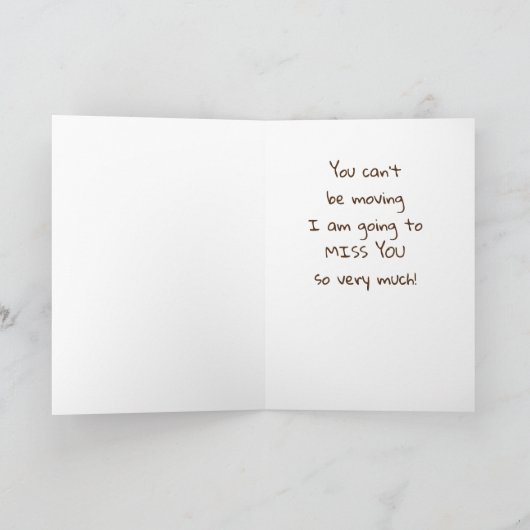 You can't
be moving
I am going to
MISS YOU
so very much!